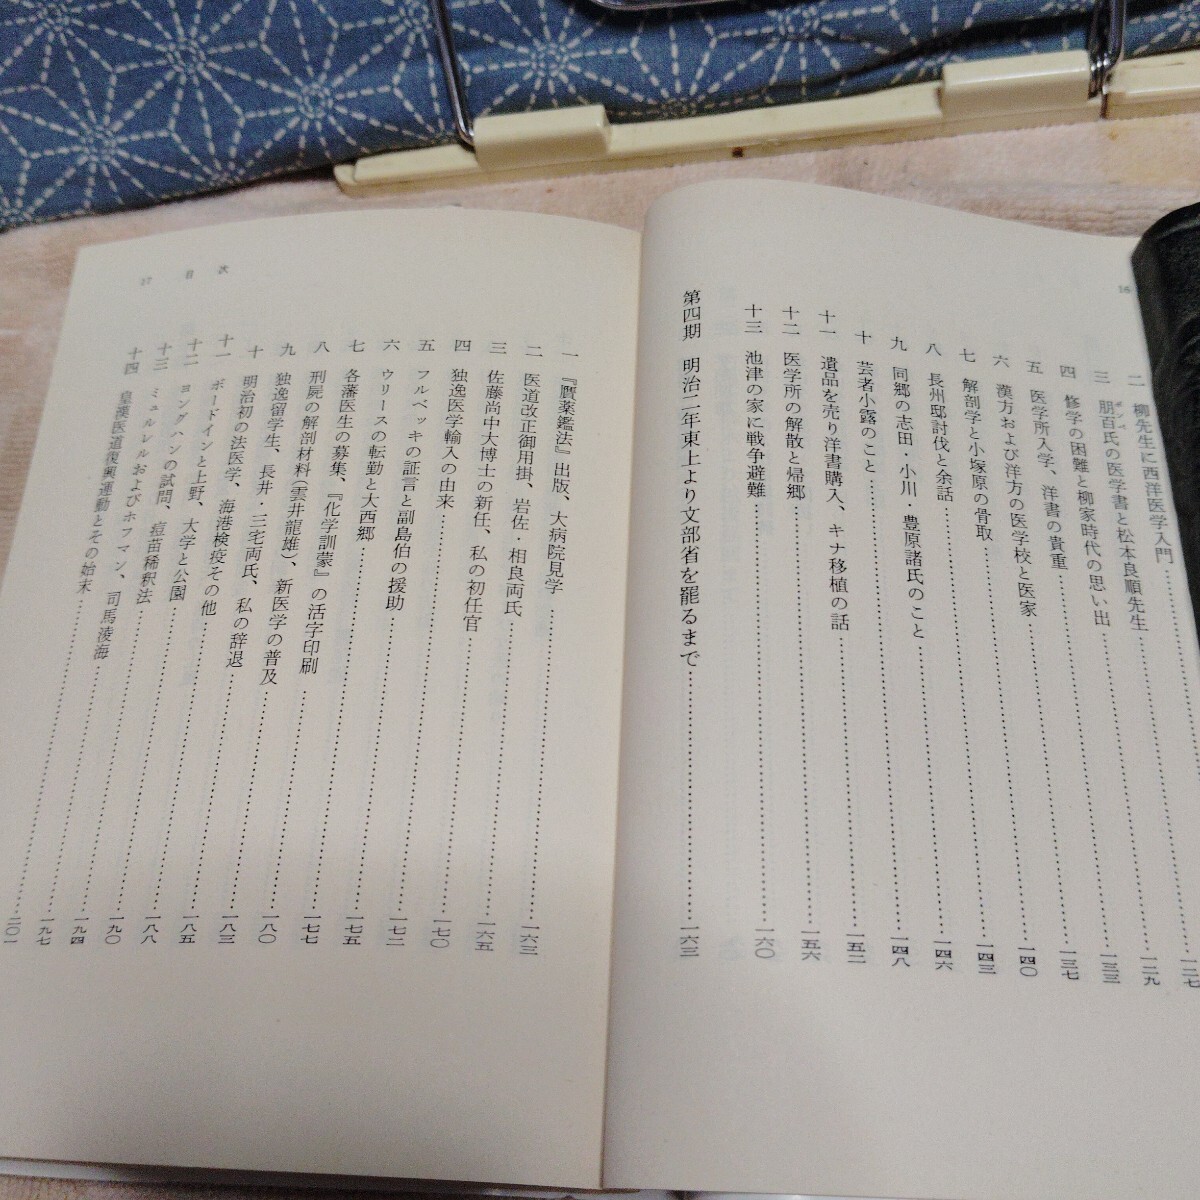 16
二 柳先生に西洋医学入門……一二七
三 朋百氏の医学書と松本良順先生……一二九
ポンペ
四 修学の困難と柳家時代の思い出……一三三
五 医学所入学、洋書の貴重……一三七
六 漢方および洋方の医学校と医家……一四〇
七 解剖学と小塚原の骨取……一四三
八 長州邸討伐と余話……一四六
九 同郷の志田・小川・豊原諸氏のこと……一四八
十 芸者小露のこと……一五二
十一 遺品を売り洋書購入、キナ移植の話
十二 医学所の解散と帰郷……一五六
十三 池津の家に戦争避難……一六〇
第四期 明治二年東上より文部省を罷るまで……一六三
17 目次
一 『贋薬鑑法』出版、大病院見学……一六三
二 医道改正御用掛、岩佐・相良両氏……一六五
三 佐藤尚中大博士の新任、私の初任官
四 独逸医学輸入の由来……一七〇
五 フルベッキの証言と副島伯の援助……一七二
六 ウリースの転勤と大西郷……一七五
七 各藩医生の募集、『化学訓蒙』の活字印刷……一七七
八 刑屍の解剖材料(雲井龍雄)、新医学の普及……一八〇
九 独逸留学生、長井・三宅両氏、私の辞退……一八三
十 明治初の法医学、海港検疫その他……一八五
十一 ボードインと上野、大学と公園……一八八
十二 ヨングハンの試問、痘苗稀釈法……一九〇
十三 ミュルレルおよびホフマン、司馬凌海……一九四
十四 皇漢医道復興運動とその始末……一九七
二〇一